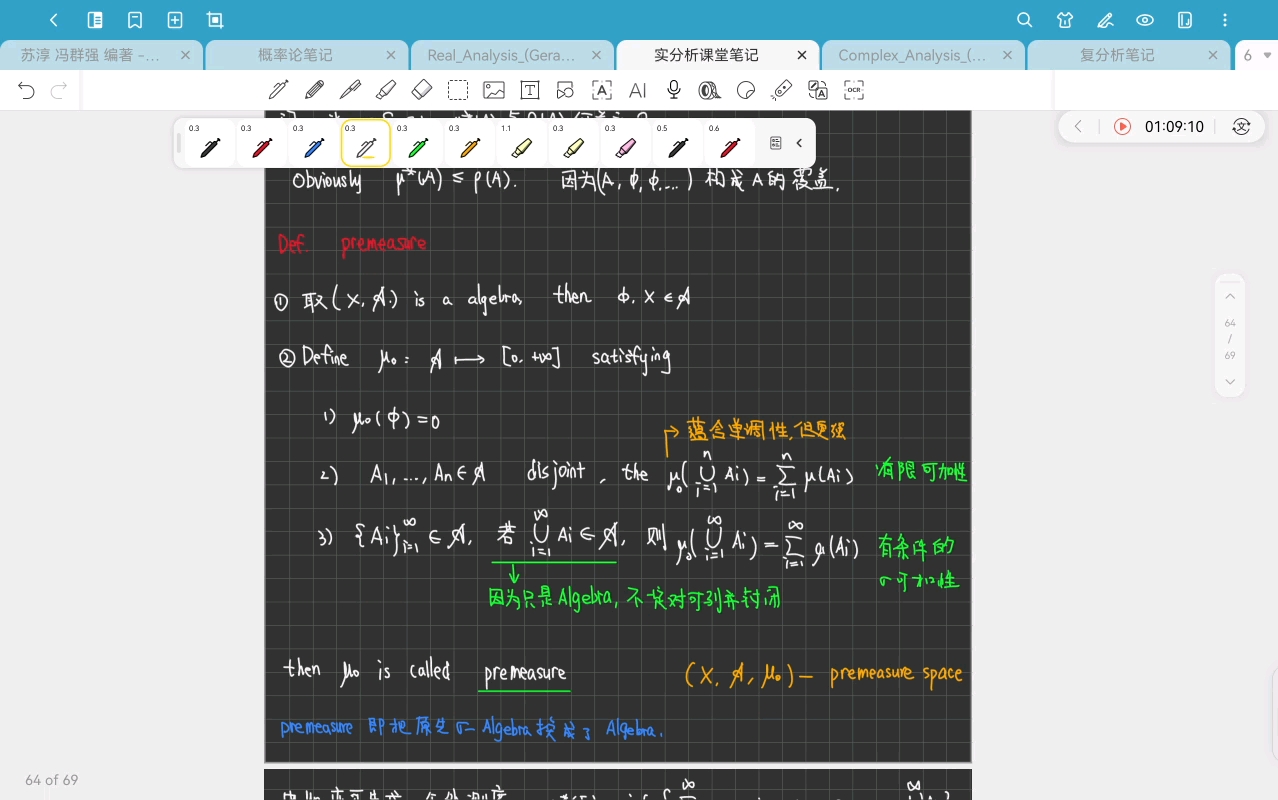 苏淳 冯群强 编著 –...
概率论笔记
Real_Analysis_(Gera...
实分析课堂笔记
Complex_Analysis_(...
复分析笔记
6
AI
OCR
0.3 0.3 0.3 0.3 0.3 0.3 1.1 0.3 0.3 0.5 0.6
01:09:10
Obviously μ*(A) ≤ ρ(A). 因为(A, ϕ, ϕ, ...) 构成A的覆盖.
Def. premeasure
① 取(X, A.) is a algebra, then ϕ. X ∈ A
② Define μ₀ : A ⟼ [0. +∞] satisfying
1) μ₀(ϕ) = 0
蕴含单调性,但更强
2) A₁, ..., Aₙ ∈ A disjoint, the μ₀(⋃ᵢ₌₁ⁿ Ai) = ∑ᵢ₌₁ⁿ μ(Ai) 有限可加性
3) {Ai}ᵢ₌₁^∞ ∈ A, 若 ⋃ᵢ₌₁^∞ Ai ∈ A, 则 μ₀(⋃ᵢ₌₁^∞ Ai) = ∑ᵢ₌₁^∞ μ(Ai) 有条件的
σ可加性
因为只是Algebra, 不一定对可列并封闭
then μ₀ is called premeasure (X, A, μ₀) — premeasure space
premeasure 即把原先σ-Algebra换成了 Algebra.
64
/
69
64 of 69